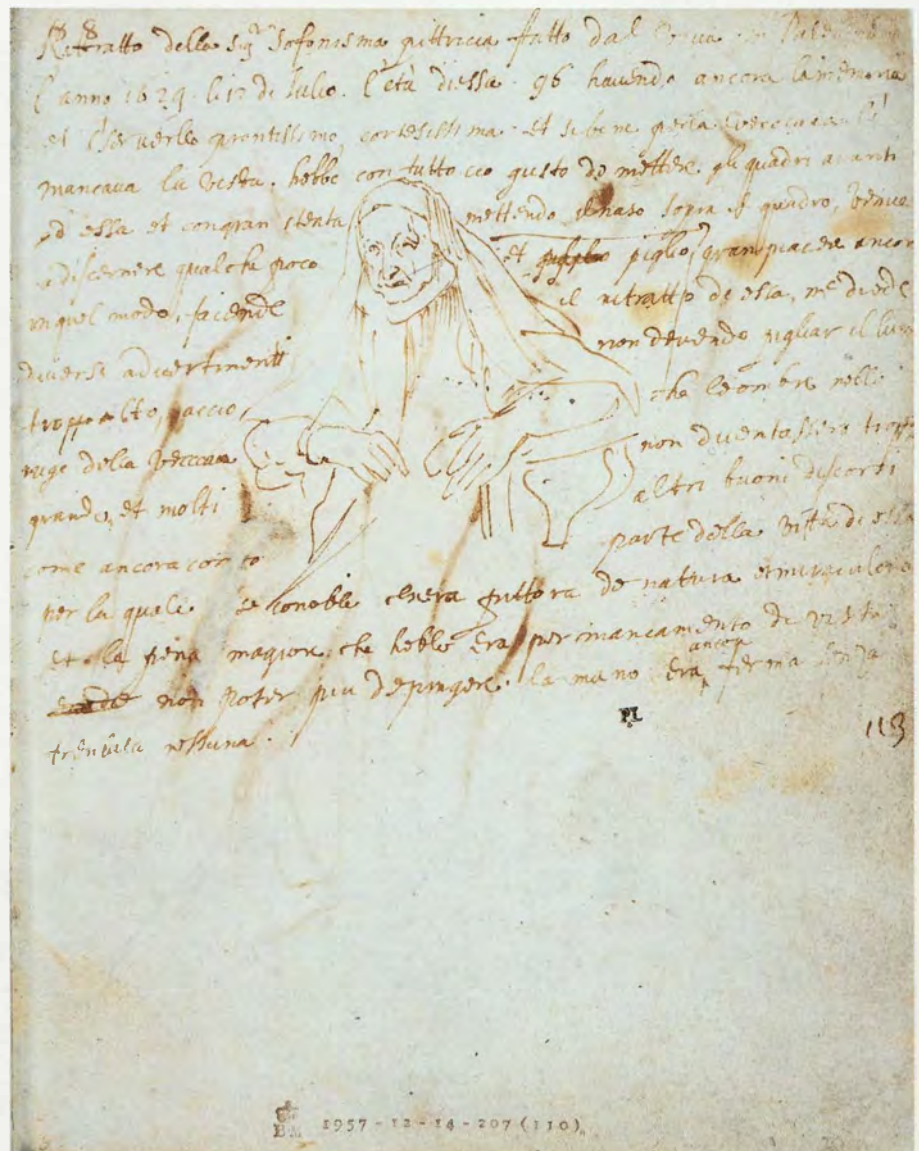 Rittratto della Sigra Sofonisma pittricia fatto dal vivo in Palermo
l'anno 1629 li 12 di Julio. l'età diessa. 96 havendo ancora la memoria
et il cervello prontissimo, cortesissima. et sebene per la vecciaia li
mancava la vista. hebbe con tutto cio gusto de mettere gli quadri avanti
ad essa et con gran stenta mettendo il naso sopra il quadro, venne
a discernere qualche poco et piglio gran piacere ancora
in quel modo, facendo il ritratto de essa, me diede
diversi advertimenti non devendo pigliar il lume
troppo alto, accio che le ombre nelle
ruge della vecciaia non diventassero troppo
grande, et molti altri buoni discorsi
come ancora conto parte della vita di essa
per la quale se conobbe chera pittora de natura et miraculosa
et la pena magiore che hebbe era per mancamento di vista
non poter piu depingere. la mano era ancora ferma senza
tremula nessuna.
PL
113
BM 1957-12-14-207(110)